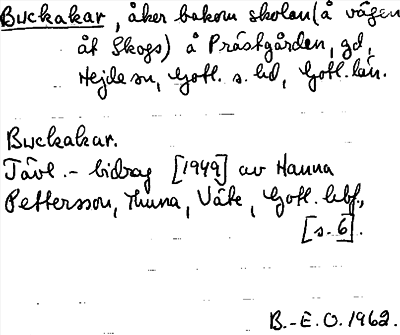 Buckakar, åker bakom skolan (å vägen
åt Skogs) å Prästgården, gd,
Hejde sn, Gotl. s. hd, Gotl. län.
Buckakar.
Tävl.-bidrag [1949] av Hanna
Pettersson, Thuna, Väte, Gotl. lbf,
[s. 6].
B.-E.O. 1962.